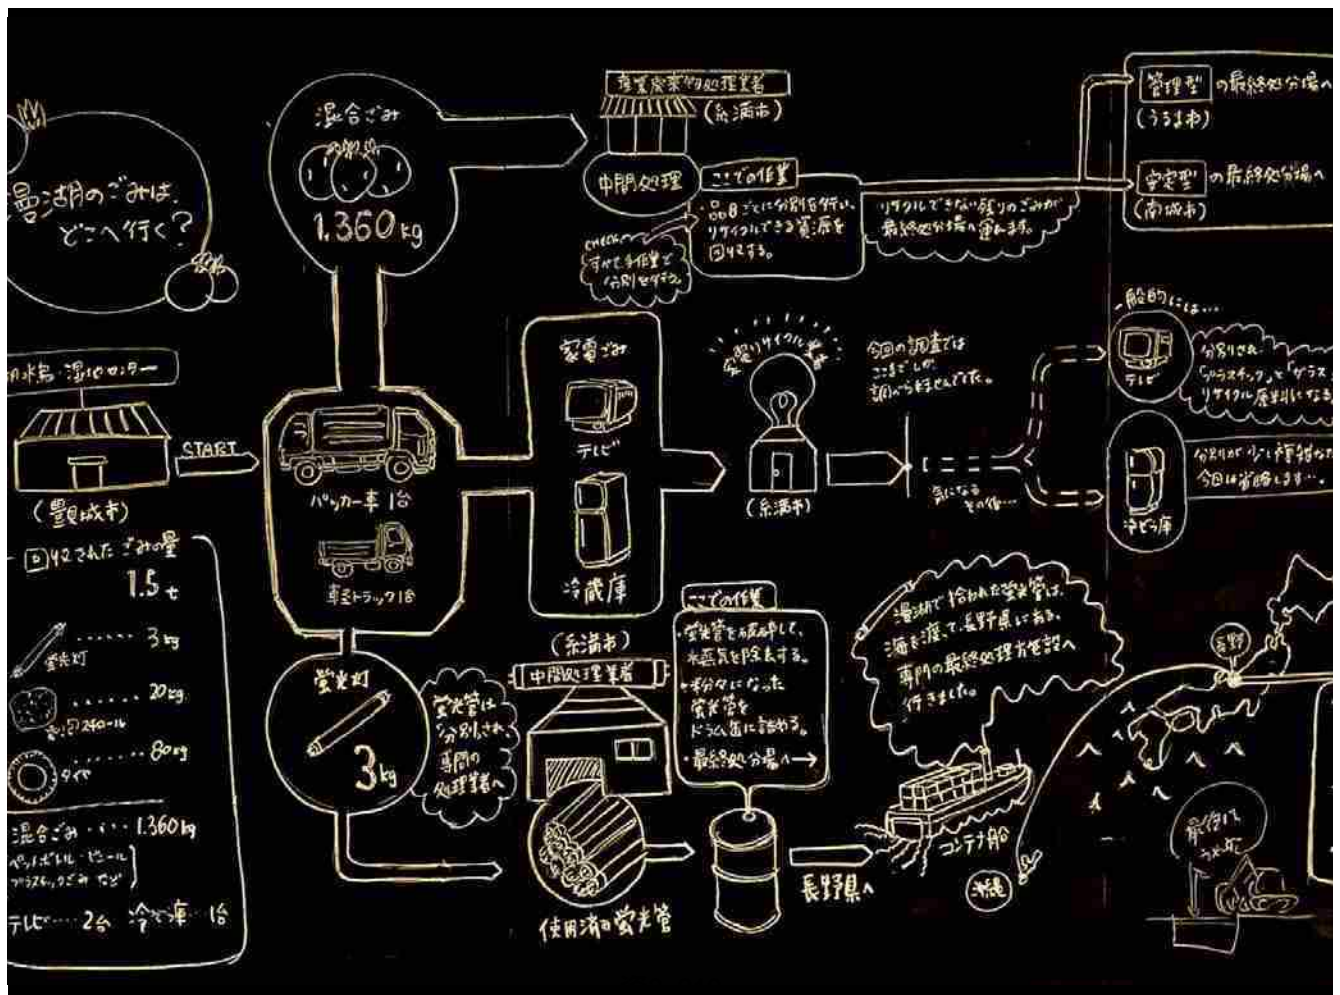 漫湖のごみは、
どこへ行く?
水鳥・湿地センター
(豊見城市)
START
回収されたごみの量
1.5t
蛍光灯 ...... 3kg
発泡スチロール ...... 20kg
タイヤ ...... 80kg
混合ごみ .... 1.360kg
ペットボトル・ビニール
プラスチックごみ など
テレビ.... 2台 冷蔵庫.. 1台
混合ごみ
1,360kg
パッカー車 1台
軽トラック1台
蛍光灯
3kg
蛍光管は
分別され、
専門の
処理業者へ
産業廃棄物処理業者
(糸満市)
中間処理
ここでの作業
・品目ごとに分別を行い、
リサイクルできる資源を
回収する。
CHECK
すべて手作業で
分別を行う。
リサイクルできない残りのごみが
最終処分場へ運ばれます。
管理型の最終処分場へ
(うるま市)
安定型の最終処分場へ
(南城市)
家電ごみ
テレビ
冷蔵庫
家電リサイクル業者
(糸満市)
今回の調査では
ここまでしか
調べられませんでした。
気になる
その後…
一般的には…
テレビ
分別され、
「プラスチック」と「ガラス
リサイクル原料になる
冷蔵庫
分別が少し複雑な
今回は省略します…。
(糸満市)
中間処理業者
使用済み蛍光管
ここでの作業
・蛍光管を破砕して、
水蒸気を除去する。
・粉々になった
蛍光管を
ドラム缶に詰める。
・最終処分場へ→
長野県へ
漫湖で拾われた蛍光管は、
海を渡って、長野県にある、
専門の最終処理施設へ
行きました。
コンテナ船
沖縄
長野